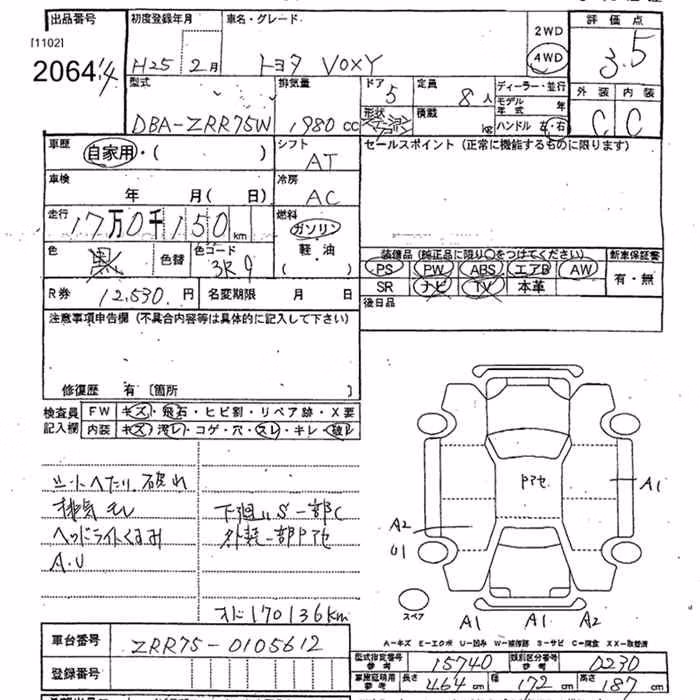 出品番号 初度登録年月 車名・グレード 評価点
[1102] 2WD
20644 H25 2月 トヨタ VOXY 4WD 3.5
型式 排気量 ドア 定員 ディーラー・並行 外装 内装
5 8人 モデル年式 年
DBA-ZRR75W 1,980cc 形状 積載 kg ハンドル 左・右 C C
車歴 自家用・( ) シフト AT セールスポイント(正常に機能するものに限ります)
車検 年 月(日) 冷房 AC
走行 17万0千150km 燃料 ガソリン
軽・油
( )
色 黒 色替 色コード 3R9
装備品(純正品に限り○をつけてください) 新車保証書
PS PW ABS エアB AW 有・無
SR ナビ TV 本革
R券 12,530円 名変期限 月 日 後日品
注意事項申告欄(不具合内容等は具体的に記入して下さい)
修復歴 有 [箇所 ]
検査員 FW キズ・飛石・ヒビ割・リペア跡・X要
記入欄 内装 キズ・汚レ・コゲ・穴・スレ・キレ・破レ
シートへたり、破れ
排気モレ 下廻りS一部C
ヘッドライトくるみ 外装一部Pアセ
A.U
オド170136km
Pアセ
A1
A2
U1
スペア
A1 A1 A2
A-キズ E-エクボ U-凹み W-補修跡 S-サビ C-腐食 XX-取替済
車台番号 ZRR75-0105612
登録番号
型式指定番号 参考 15740 類別区分番号 参考 0230
車検証明用 参考 長さ 464cm 幅 172cm 高さ 187cm